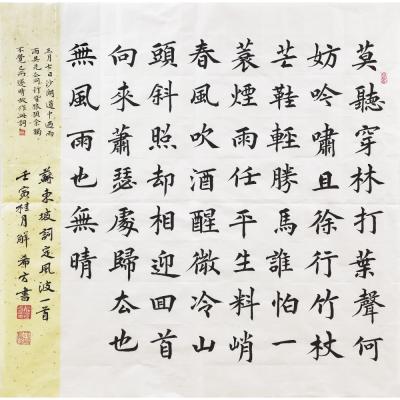 莫聽穿林打葉聲何
妨吟嘯且徐行竹杖
芒鞋輕勝馬誰怕一
蓑煙雨任平生料峭
春風吹酒醒微冷山
頭斜照却相迎回首
向來蕭瑟處歸去也
無風雨也無晴
三月七日沙湖道中遇雨
雨具先去同行皆狼狽余獨
不覺已而遂晴故作此詞
蘇東坡詞定風波一首
壬寅桂月解希方書